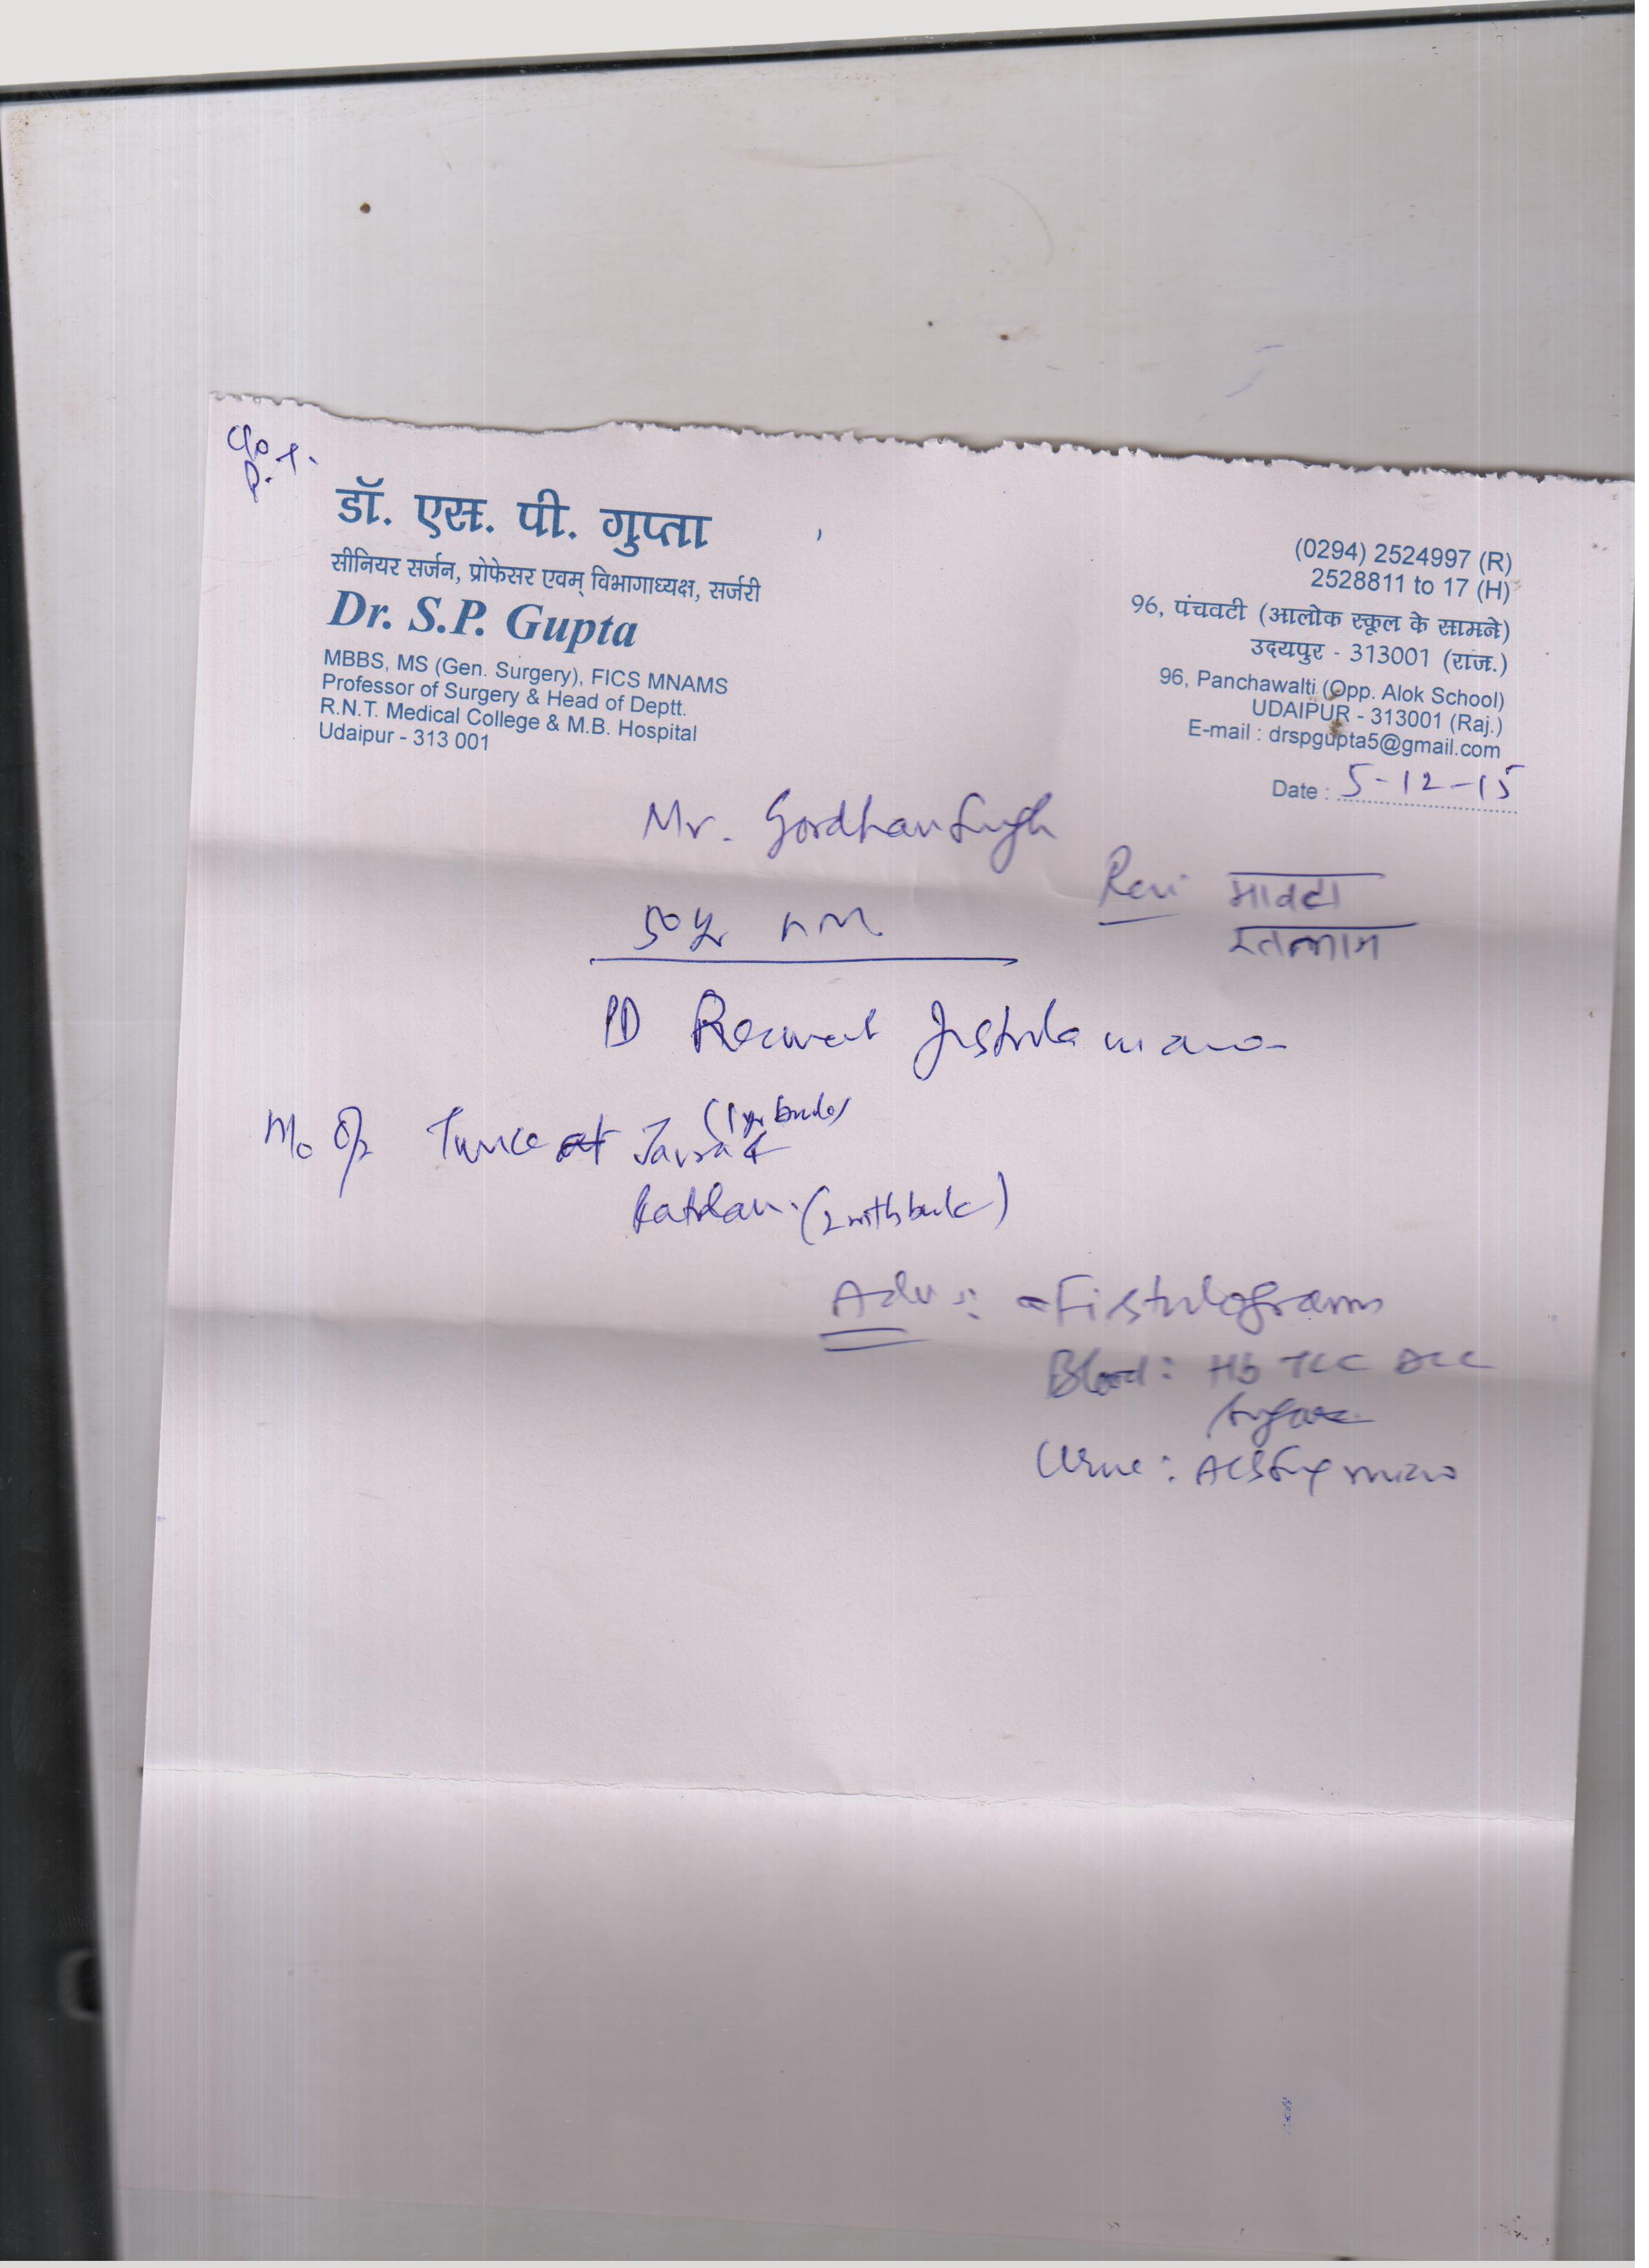 डॉ. एस. पी. गुप्ता
सीनियर सर्जन, प्रोफेसर एवम् विभागाध्यक्ष, सर्जरी
Dr. S.P. Gupta
MBBS, MS (Gen. Surgery), FICS MNAMS
Professor of Surgery & Head of Deptt.
R.N.T. Medical College & M.B. Hospital
Udaipur - 313 001
(0294) 2524997 (R)
2528811 to 17 (H)
96, पंचवटी (आलोक स्कूल के सामने)
उदयपुर - 313001 (राज.)
96, Panchawalti (Opp. Alok School)
UDAIPUR - 313001 (Raj.)
E-mail : drspgupta5@gmail.com
Date : 5-12-15
Mr. Gordhan Singh
50 yr
रतलाम
PD Recurrent Fistula in ano
Twice at Jaora &
Ratlam (2 mths back)
Adv: - Fistulogram
Blood: Hb TLC DLC
Sugar
Urine: Alb Sug micro